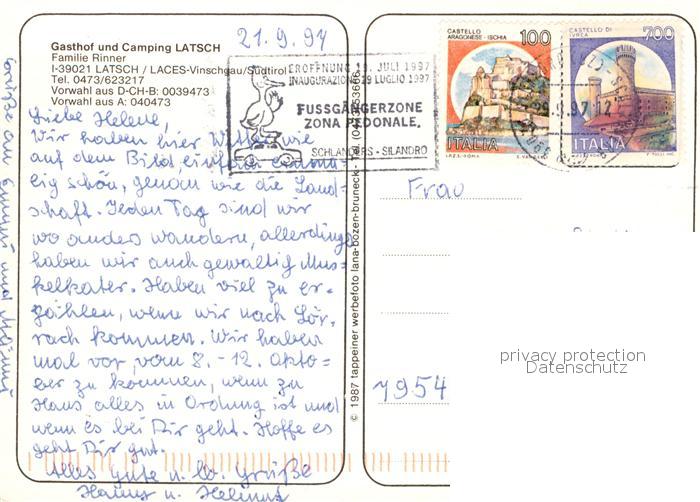 Gasthof und Camping LATSCH
Familie Rinner
I-39021 LATSCH / LACES-Vinschgau/Südtirol
Tel. 0473/623217
Vorwahl aus D-CH-B: 0039473
Vorwahl aus A: 040473
21.9.97
ERÖFFNUNG 19. JULI 1997
INAUGURAZIONE 19 LUGLIO 1997
FUSSGÄNGERZONE
ZONA PEDONALE.
SCHLANDERS - SILANDRO
CASTELLO
ARAGONESE - ISCHIA
100
ITALIA
I.P.Z.S. - ROMA
CASTELLO DI
IVREA
700
ITALIA
Liebe Helene,
Wir haben hier Wetter wie
auf dem Bild, einfach
schön, genau wie die Land-
schaft. Jeden Tag sind wir
wo anders wandern, allerdings
haben wir auch gewaltig Mus-
kelkater. Haben viel zu er-
zählen, wenn wir nach Lör-
rach kommen. Wir haben
mal vor, vom 8. - 12. Okto-
ber zu kommen, wenn zu
Haus alles in Ordnung ist und
wenn es bei Dir geht. Hoffe es
geht Dir gut.
Alles Gute u. lb. Grüße
Hanny u. Helmut
Grüße an
und
© 1987 tappeiner werbefoto lana-bozen-bruneck - Tel.
Frau
7954
privacy protection
Datenschutz